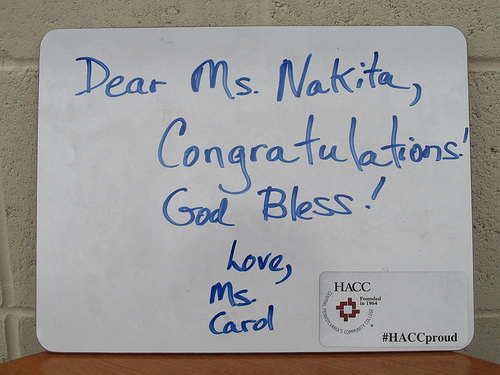 Dear Ms. Nakita,
Congratulations!
God Bless!
Love,
Ms.
Carol
HACC
Founded
in 1964
CENTRAL PENNSYLVANIA'S COMMUNITY COLLEGE
#HACCproud